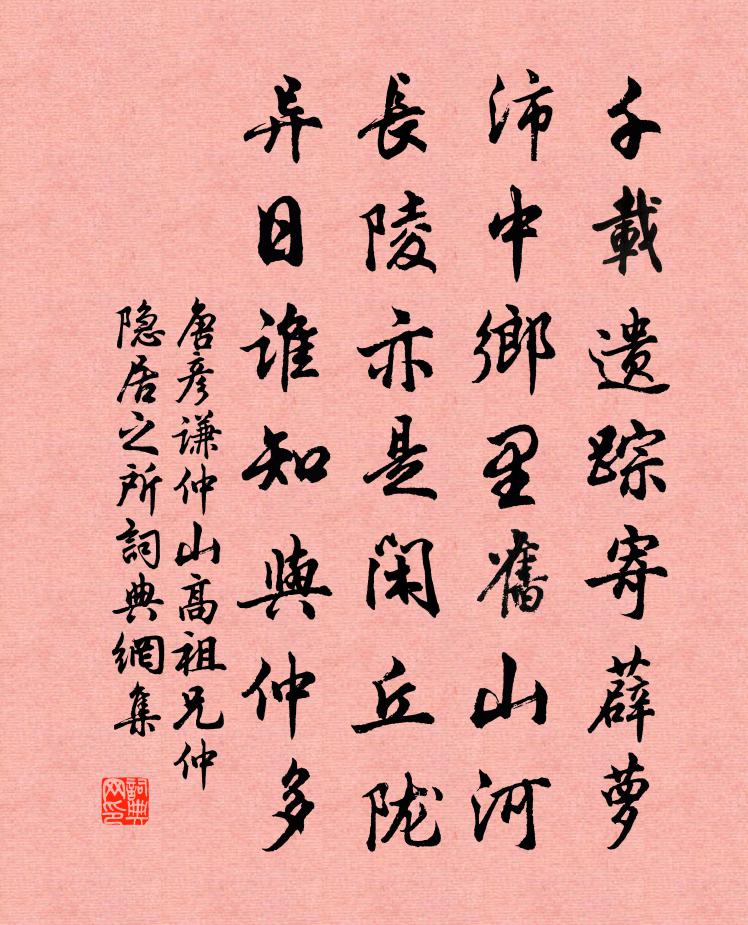 千載遺踪寄薜萝
沛中鄉里舊山河
長陵亦是閑丘陇
异日誰知與仲多
唐彦谦仲山高祖兄仲
隐居之所詞典網集
詞典网印